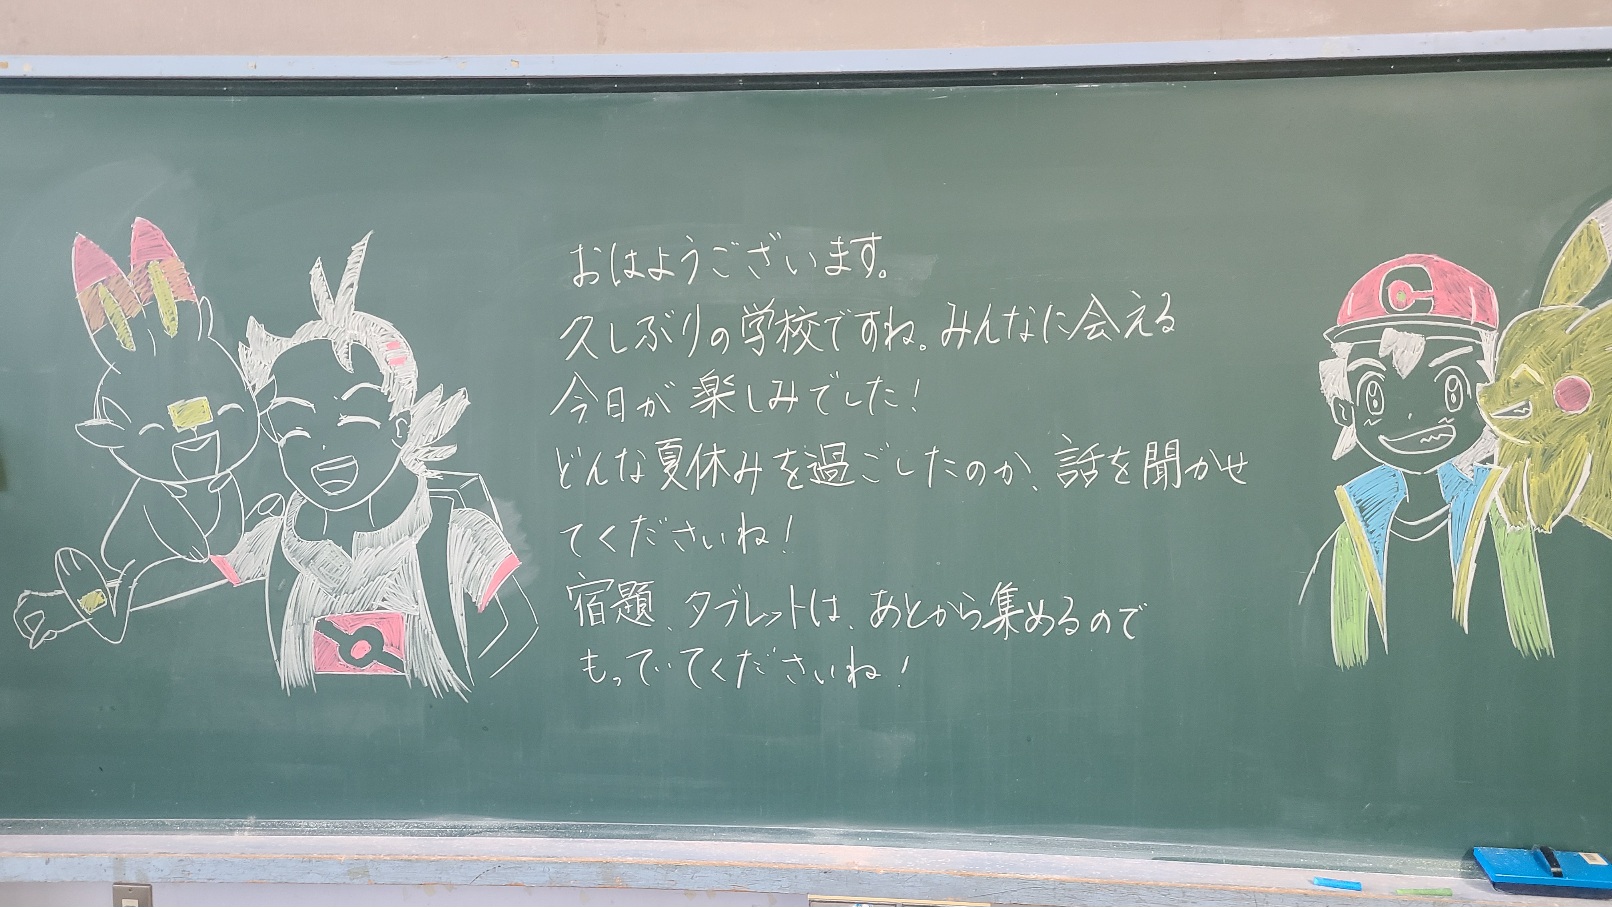 おはようございます。
久しぶりの学校ですね。みんなに会える
今日が楽しみでした!
どんな夏休みを過ごしたのか、話を聞かせ
てくださいね!
宿題、タブレットは、あとから集めるので
もっていてくださいね!